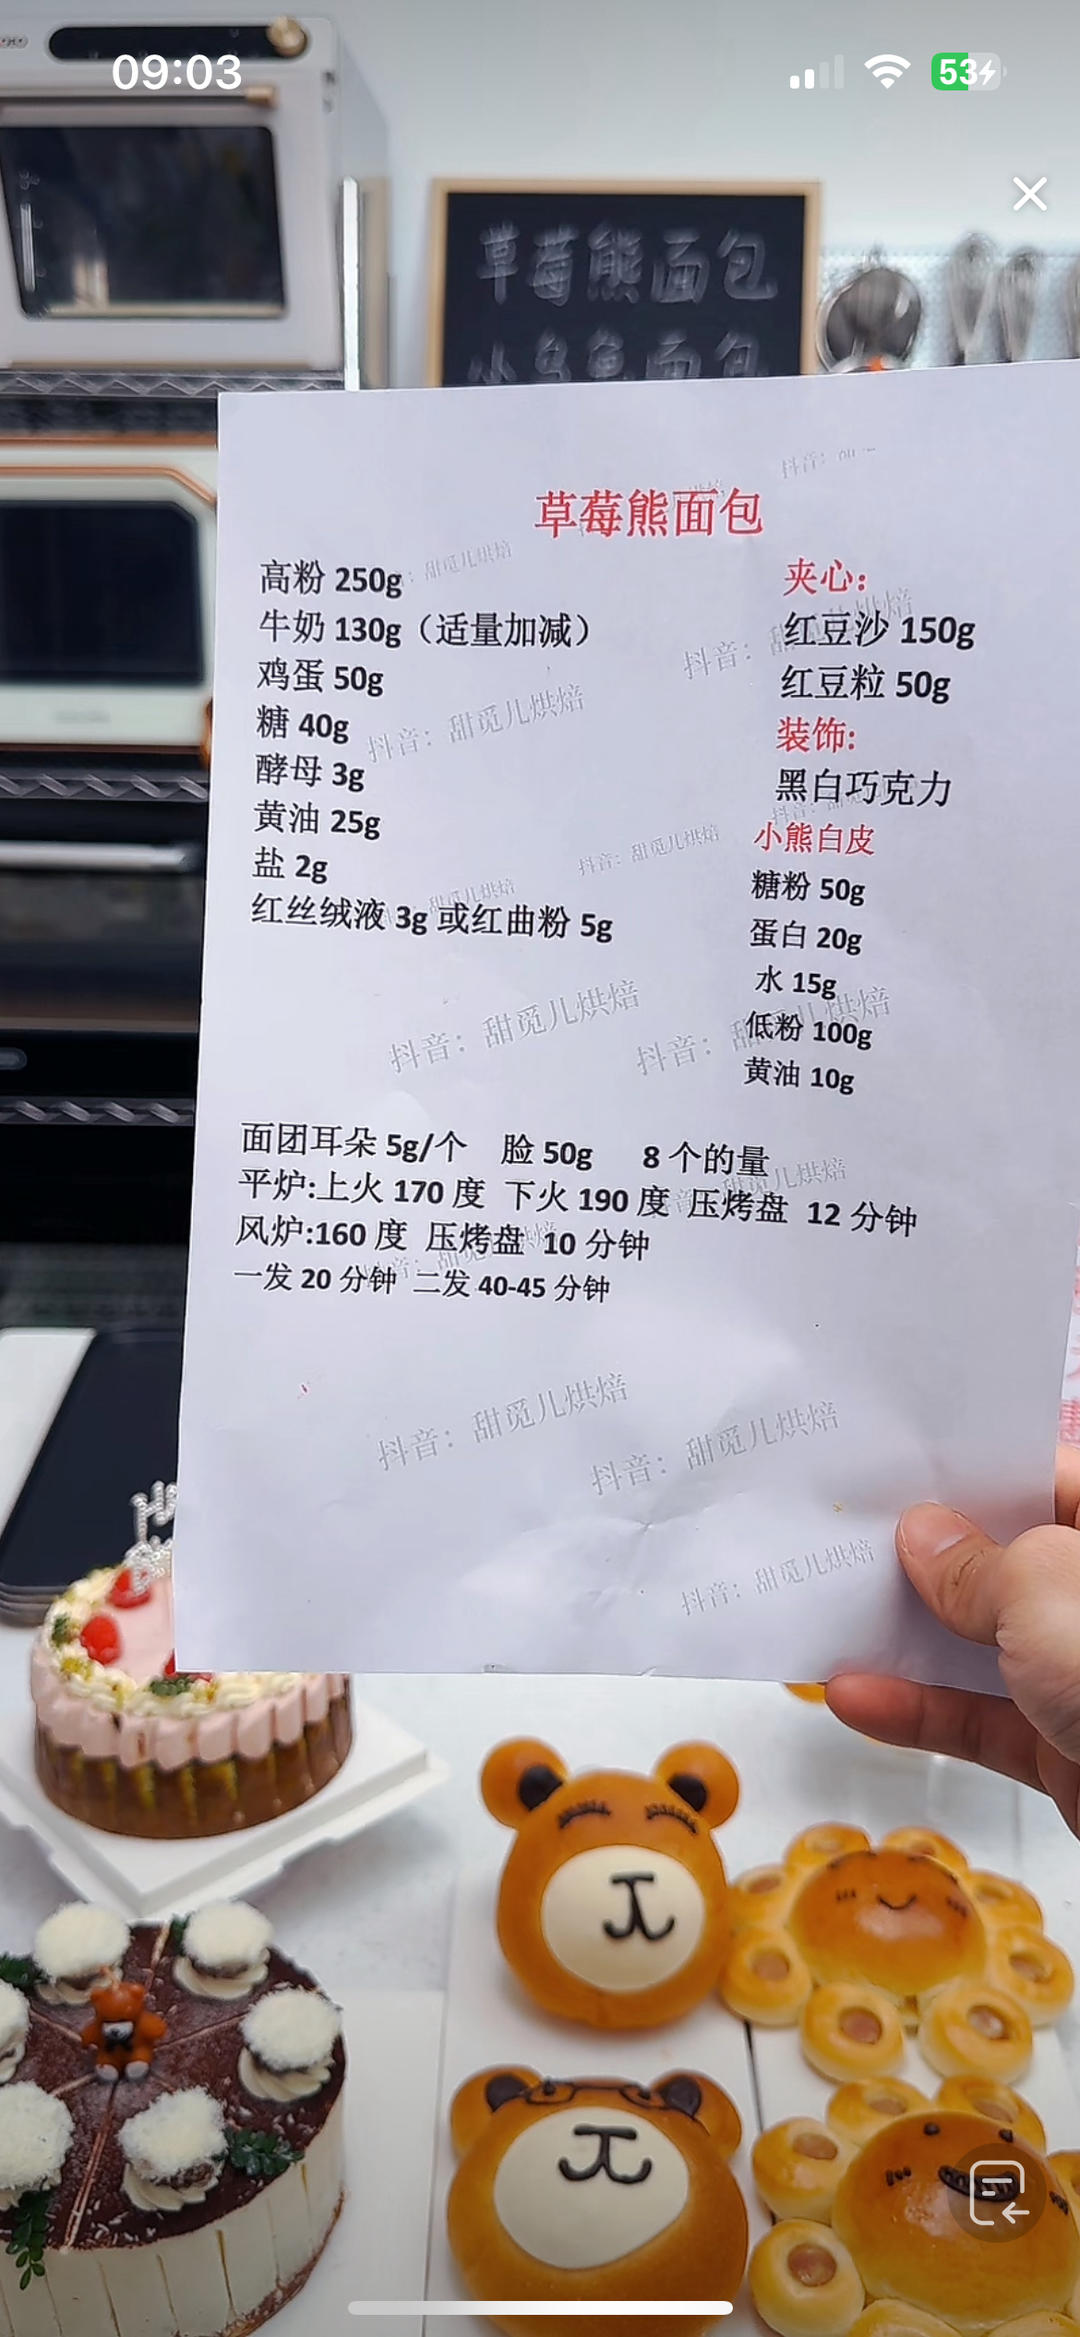 09:03
53
草莓熊面包
小乌龟面包
草莓熊面包
高粉 250g
牛奶 130g（适量加减）
鸡蛋 50g
糖 40g
酵母 3g
黄油 25g
盐 2g
红丝绒液 3g 或红曲粉 5g
夹心：
红豆沙 150g
红豆粒 50g
装饰:
黑白巧克力
小熊白皮
糖粉 50g
蛋白 20g
水 15g
低粉 100g
黄油 10g
面团耳朵 5g/个 脸 50g 8 个的量
平炉:上火 170 度 下火 190 度 压烤盘 12 分钟
风炉:160 度 压烤盘 10 分钟
一发 20 分钟 二发 40-45 分钟
抖音：甜觅儿烘焙
抖音：甜觅儿烘焙
抖音：甜觅儿烘焙
抖音：甜觅儿烘焙
抖音：甜觅儿烘焙
抖音：甜觅儿烘焙
抖音：甜觅儿烘焙
抖音：甜觅儿烘焙